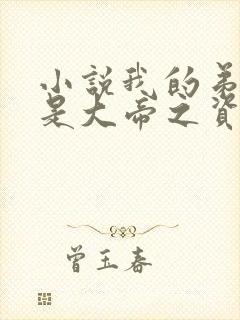 小說我的弟
是大帝之資
曾玉春